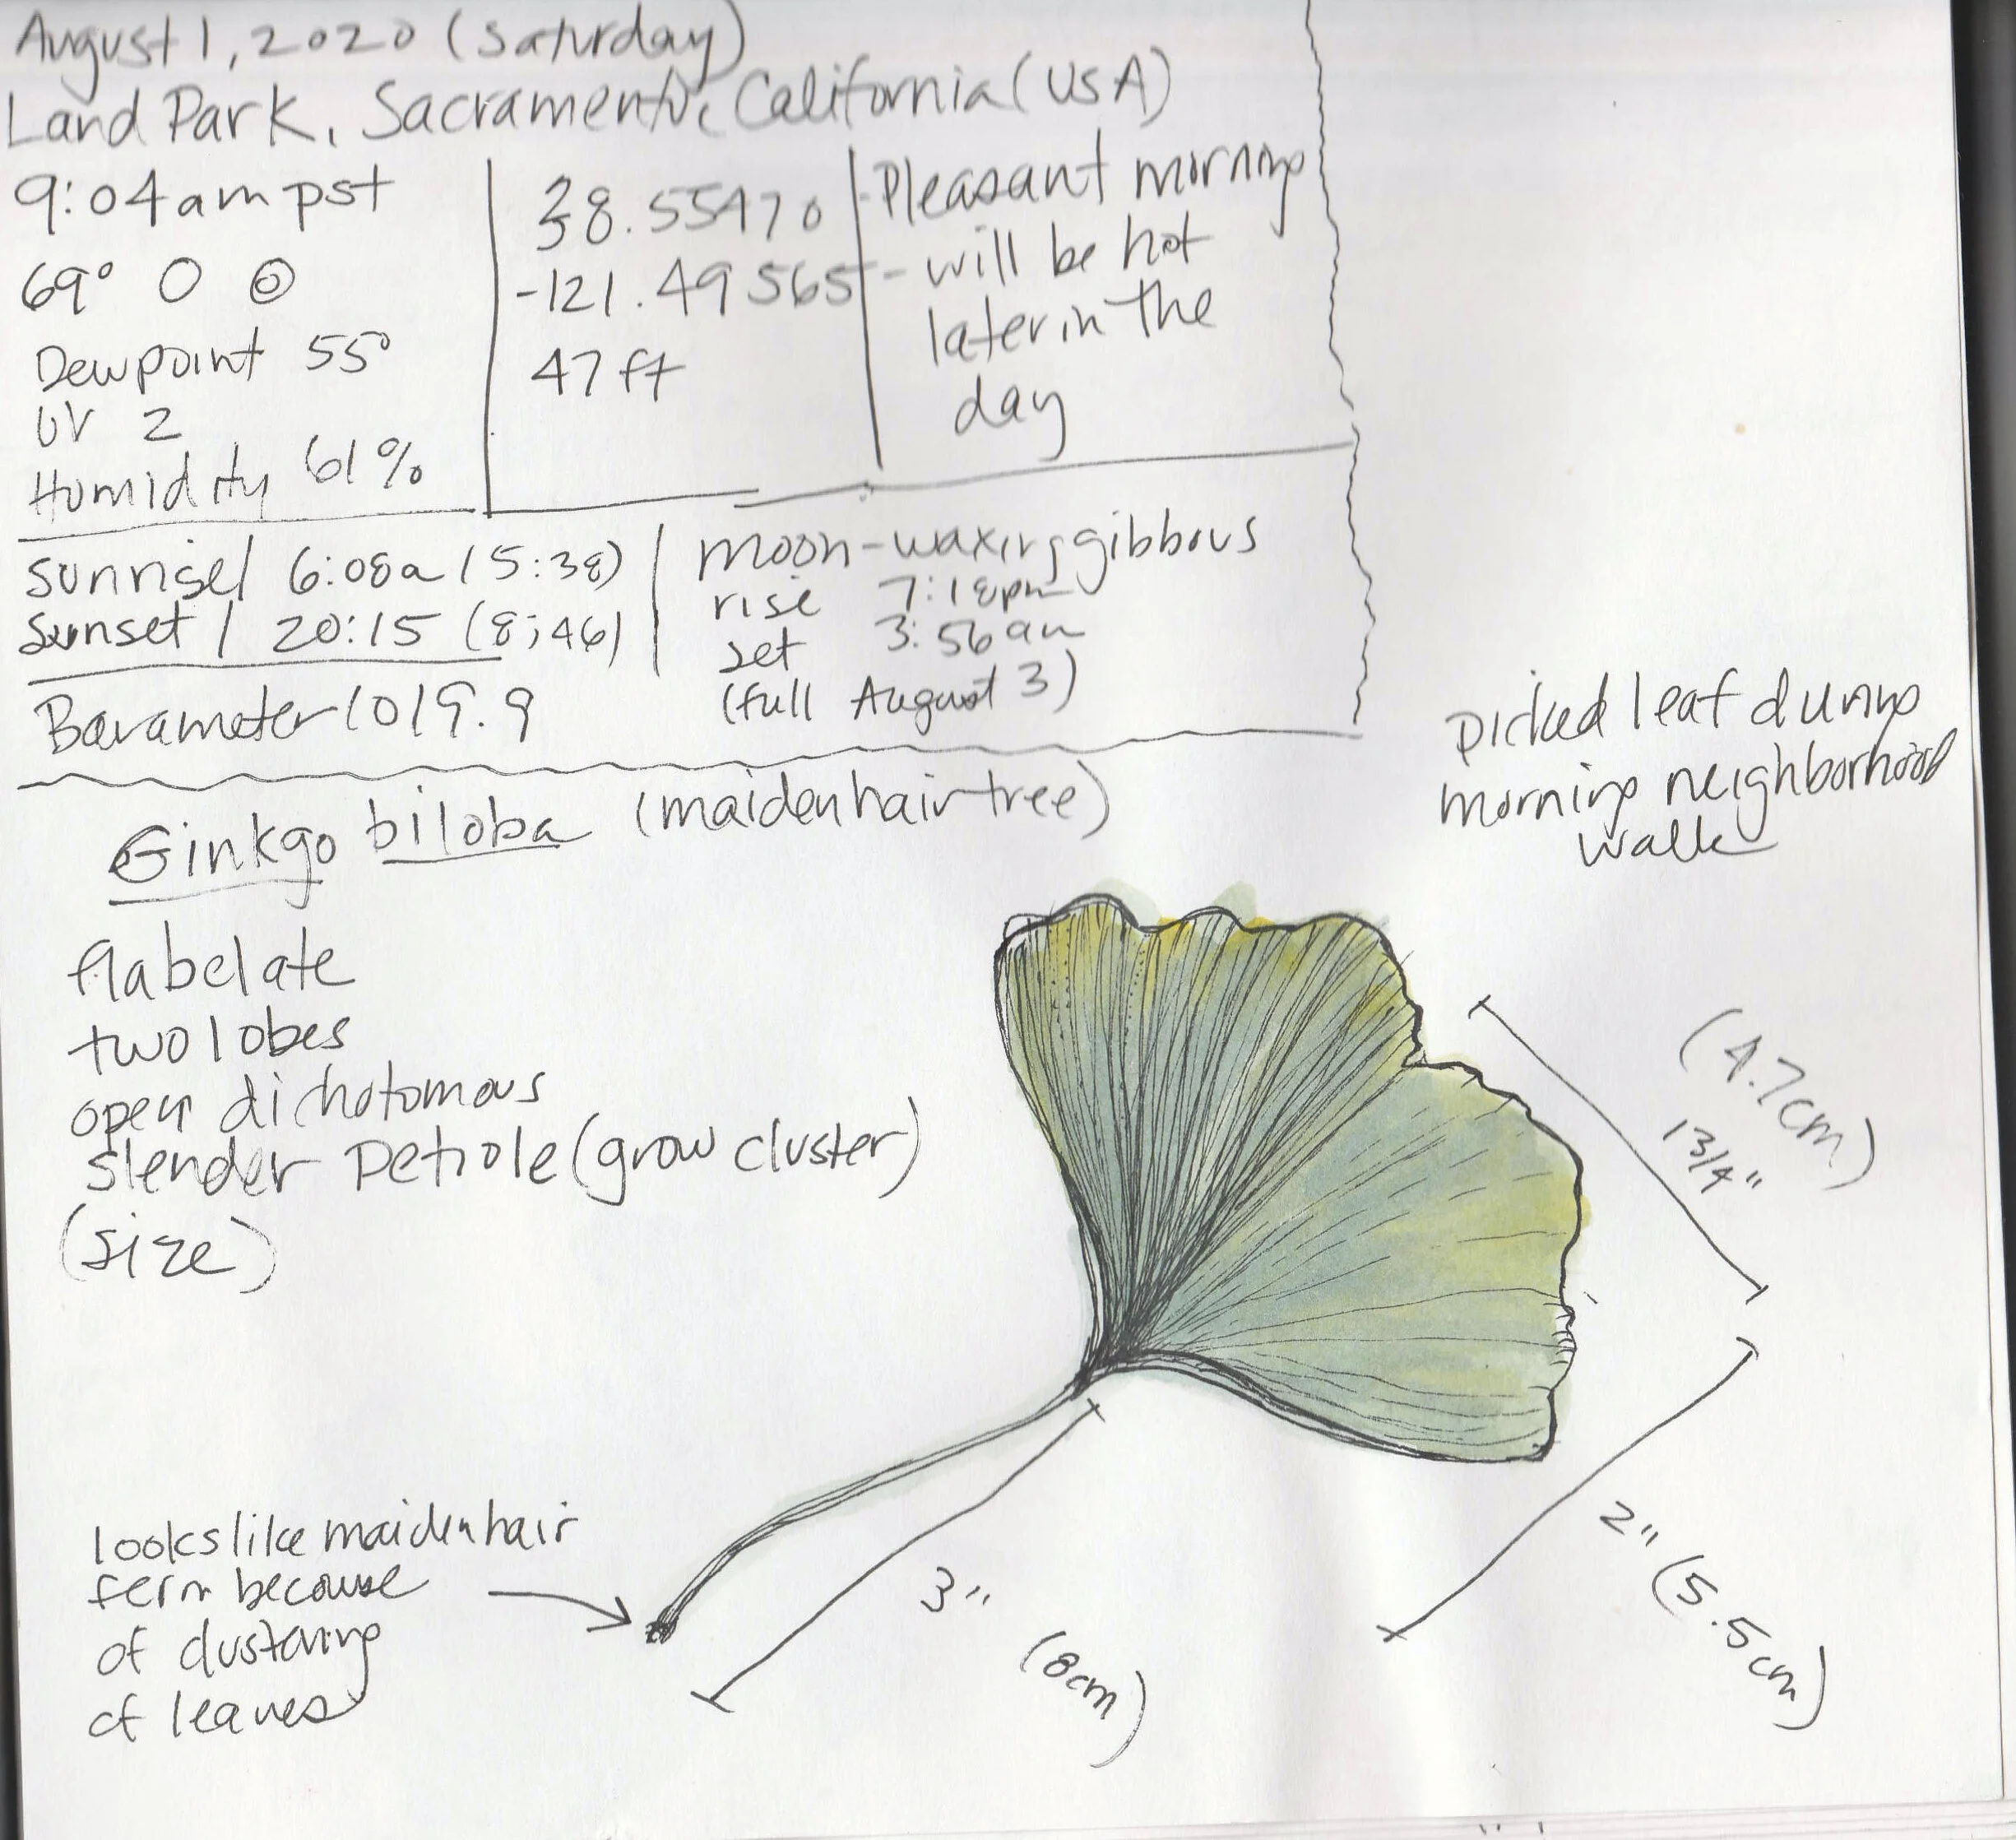 August 1, 2020 (Saturday)
Land Park, Sacramento, California (USA)
9:04am pst
69°
Dewpoint 55°
UV 2
Humidity 61%
38.55470
-121.49565
47 ft
Pleasant morning
- will be hot
later in the
day
Sunrise / 6:08a (5:38)
Sunset / 20:15 (8:46)
moon - waxing gibbous
rise 7:18pm
set 3:56am
(full August 3)
Barameter 1019.9
Ginkgo biloba (maidenhair tree)
flabelate
two lobes
open dichotomous
slender petiole (grow cluster)
(size)
picked leaf during
morning neighborhood
walk
(4.7cm)
1 3/4"
2" (5.5cm)
3"
(8cm)
looks like maidenhair
fern because
of clustering
of leaves